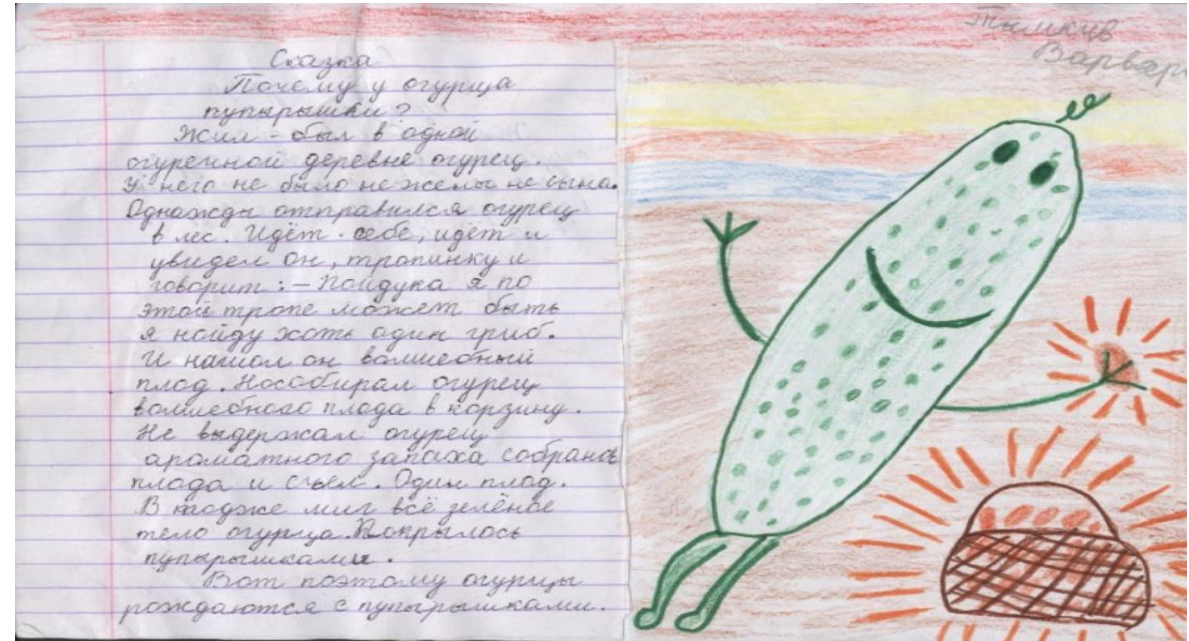 Сказка
Почему у огурца
пупырышки?
Жил-был в одной
огуречной деревне огурец.
У него не было не жены не сына.
Однажды отправился огурец
в лес. Идёт себе, идёт и
увидел он, тропинку и
говорит: - Пойдука я по
этой тропе может быть
я нойду хоть один гриб.
И нашол он волшебный
плод. Нособирал огурец
волшебного плода в корзину.
Не выдержал огурец
ароматного запаха собранов
плода и съел. Один плод.
В тодже миг всё зелёное
тело огурца. Покрылось
пупырышками.
Вот поэтому огурцы
рождаются с пупырышками.
Тымкив
Варвар